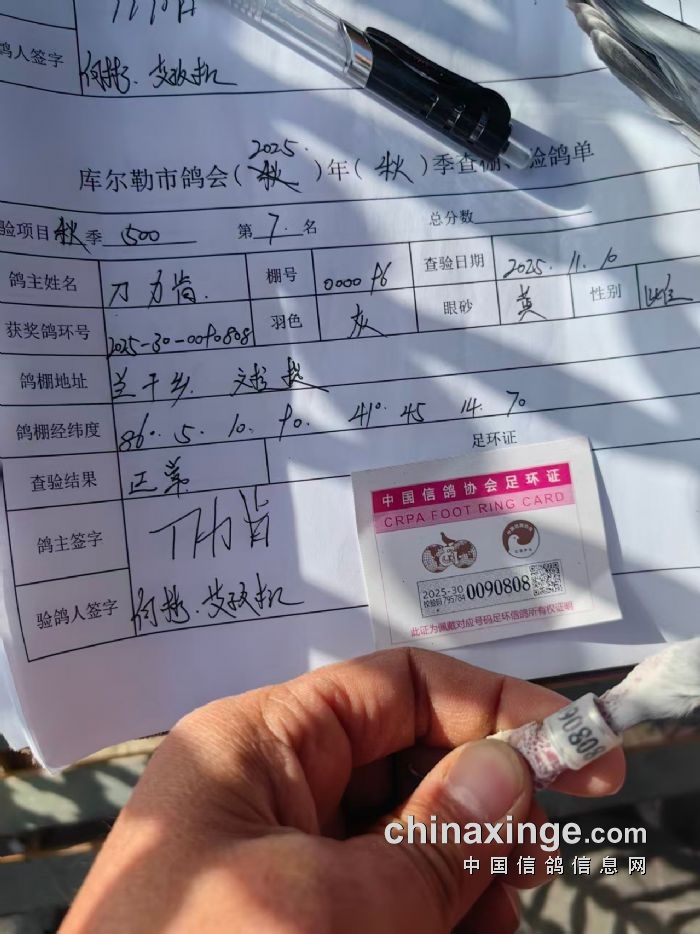 鸽人签字 何彬.
2025.
库尔勒市鸽会( 秋 )年( 秋 )季查棚、验鸽单
验项目 秋季 500 第 7. 名 总分数
鸽主姓名 刀力肯. 棚号 0000 96 查验日期 2025. 11. 10
获奖鸽环号 2025-30-0090808 羽色 灰 眼砂 黄 性别 雄
鸽棚地址 兰干乡.
鸽棚经纬度 86. 5. 10. 90. 41. 45 14. 70
查验结果 正常 足环证
鸽主签字
验鸽人签字 何彬.
中国信鸽协会足环证
CRPA FOOT RING CARD
2025-30
校验码 795784
0090808
此证为佩戴对应号码足环信鸽所有权证明
90808
chinaxinge.com
中国信鸽信息网